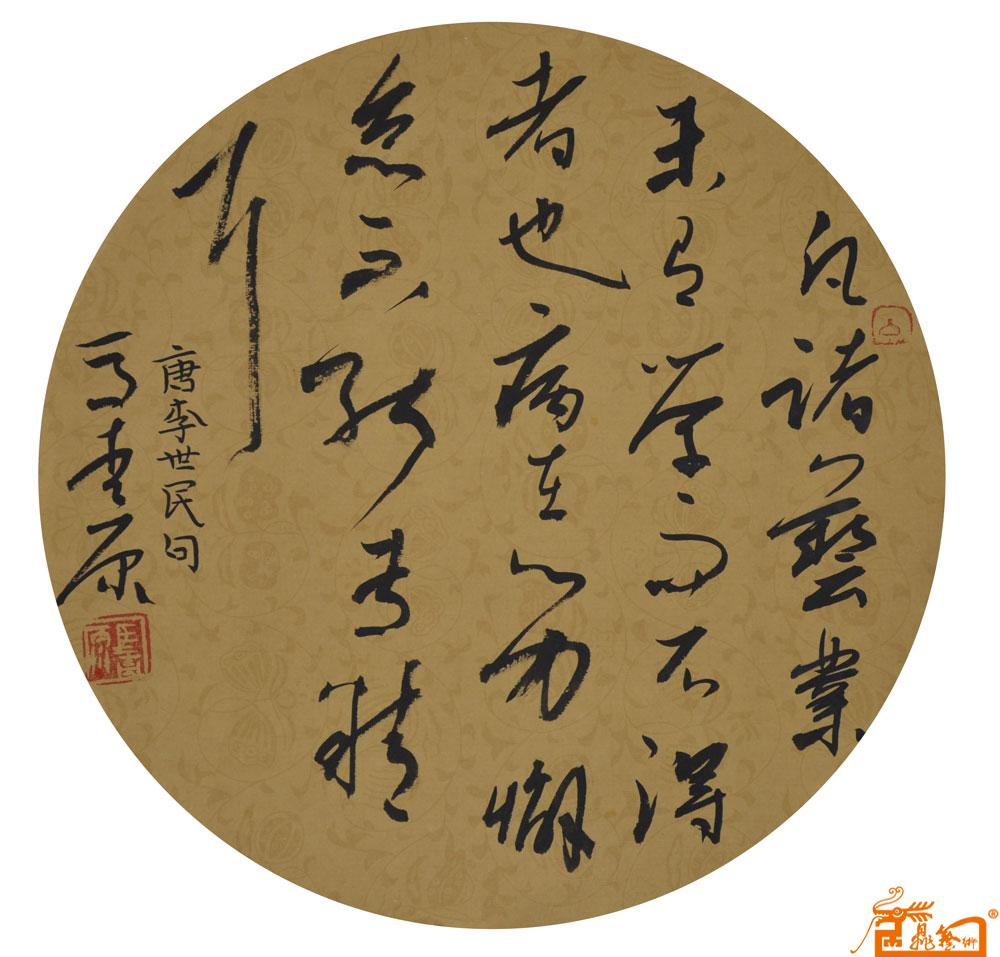 凡诸藝業
未有学而不得
者也病在心力懈
怠不能专精
耳
唐李世民句